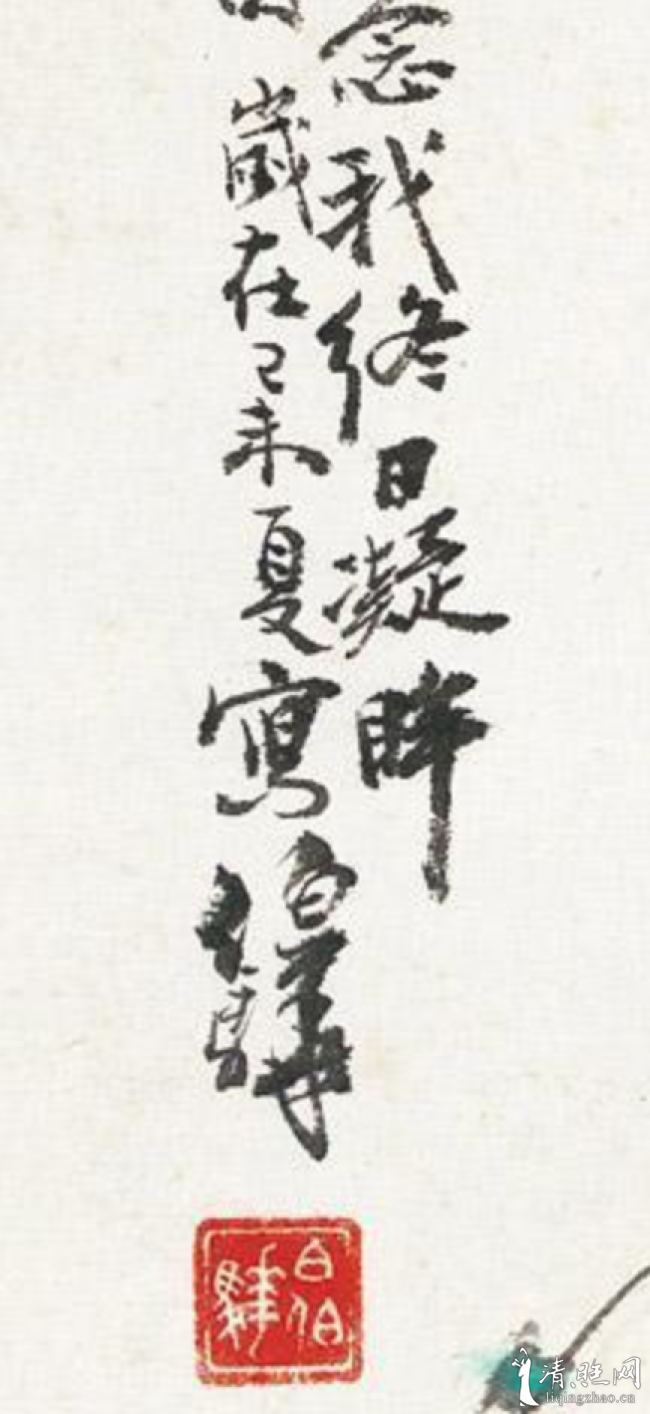 念我終日凝眸
歲在己未夏寫
白伯驊
白伯驊
清照网
liqingzhao.cn